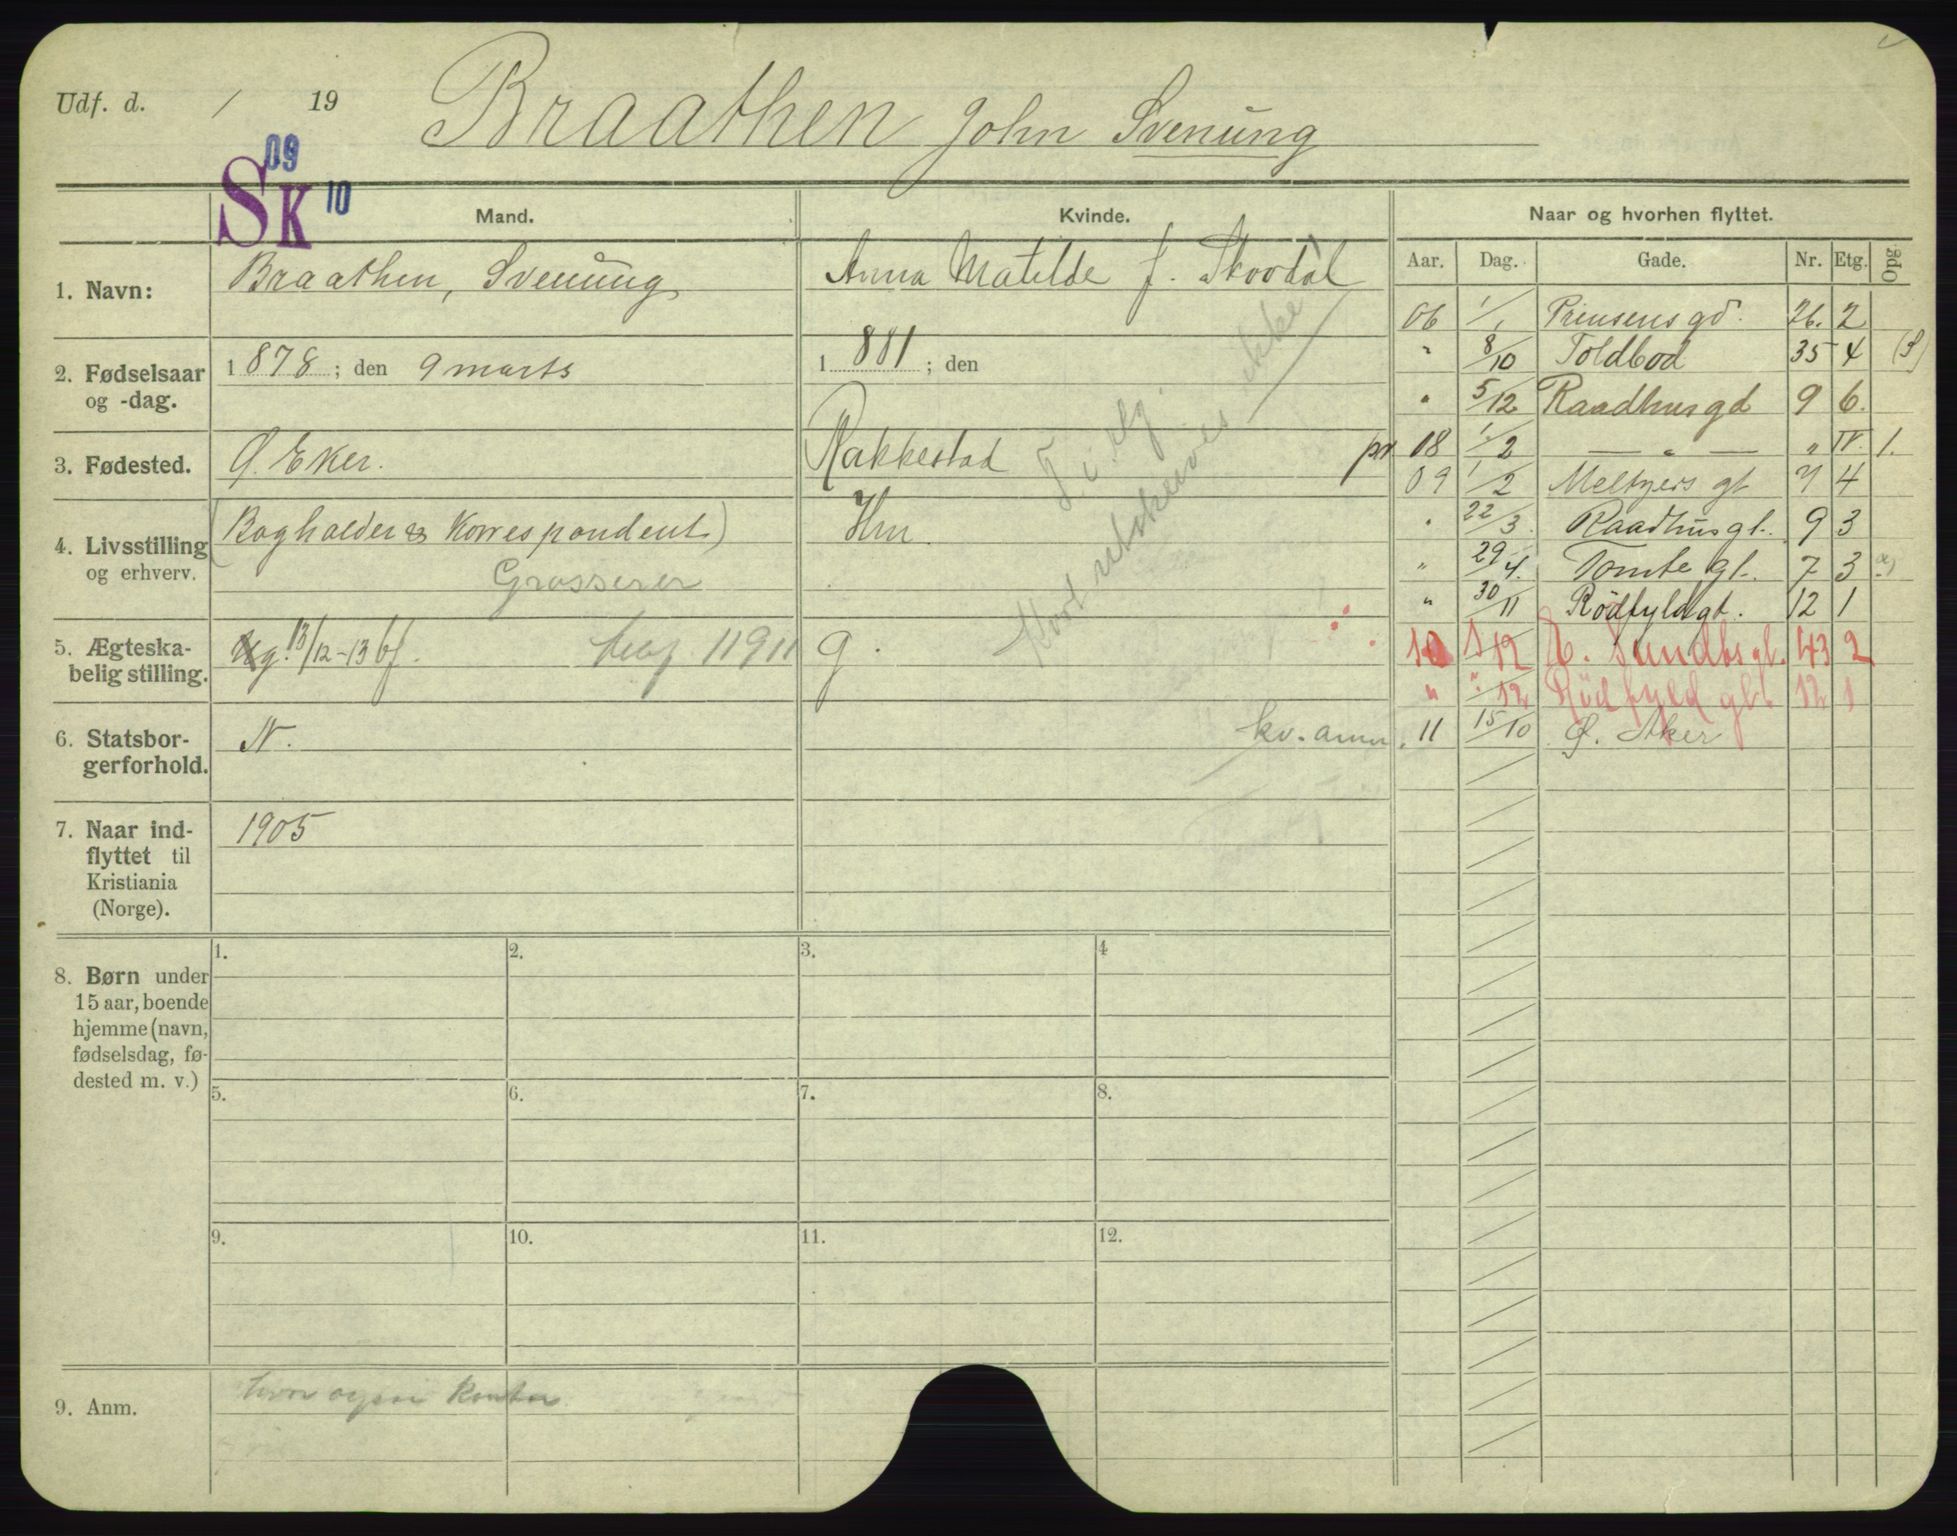 Udf. d. / 19 Braathen John Svenung
09
SK 10
Mand. Kvinde. Naar og hvorhen flyttet.
Aar. Dag. Gade. Nr. Etg. Opg
1. Navn: Braathen, Svenung Anna Matilde f. Skovdal
06 1/1 Prinsens gd. 26. 2
" 8/10 Toldbod 35 4 (S)
2. Fødselsaar og -dag. 1878; den 9 marts 1881; den
" 5/12 Raadhus gd 9 6.
3. Fødested. Ø. Eker. Rakkestad
pr 08 1/2 — " — " IV. 1.
09 1/2 Meltzers gt 7 4
4. Livsstilling og erhverv. (Bogholder & Korrespondent) Hm.
Grosserer
" 22/3 Raadhus gt. 9 3
" 29/4. Tomte gt. 7 3
" 30/11 Rödfyldgt. 12 1
5. Ægteskabelig stilling. Ug. 13/12-13 bf. 11911 g.
10 1/12 Sundts gt. 43 2
" " 12 Rödfyld gt. 12 1
6. Statsborgerforhold. N. kv. anm.
11 15/10 Ø. Aker
Kort utskrives ikke
7. Naar indflyttet til Kristiania (Norge). 1905
8. Børn under 15 aar, boende hjemme (navn, fødselsdag, fødested m. v.)
1. 2. 3. 4
5. 6. 7. 8.
9. 10. 11. 12.
9. Anm. kontor